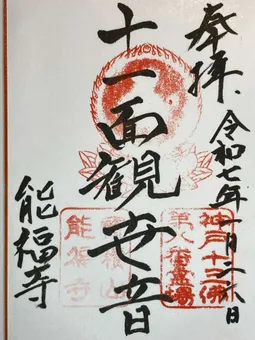 奉拝
令和七年一月二六日
十一面観世音
神戸十三佛
第八番霊場
能福寺
能福寺